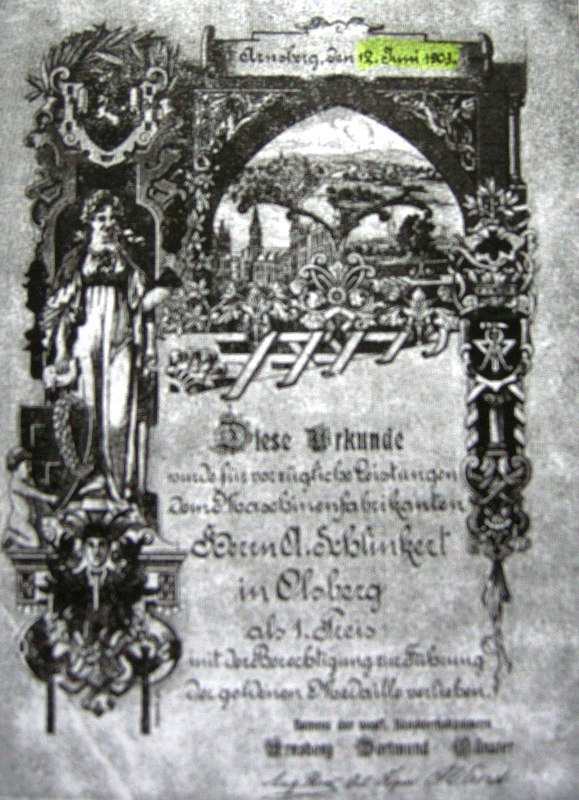 Arnsberg, den 12. Juni 1903.
Diese Urkunde
wurde für vorzügliche Leistungen
dem Maschinenfabrikanten
Herrn A. Schlinkert
in Olsberg
als 1. Preis
mit der Berechtigung zur Führung
der goldenen Medaille verliehen.
Namen der westf. Handwerkskammern
Arnsberg Dortmund Münster